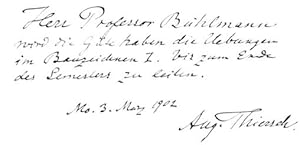 Herr Professor Bühlmann
wird die Güte haben die Uebungen
im Bauzeichnen I. bis zum Ende
des Semesters zu leiten.
Mo. 3. März 1902
Aug. Thiersch